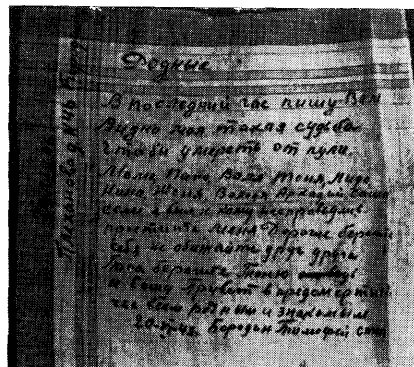 Родные
В последний час пишу Вам
Видно моя такая судьба
чтоби умереть от пули.
Мама Папа Валя Тоня, Лида
Нина Женя, Володя Аркадий
если я был к кому несправедлив
простите меня Дорогие
себя и обитайте друг друга
Папа берегите
и Вашу Привет в предсмертный
час всем родным и знакомым
20- Бородин Тимофей